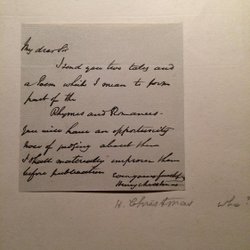 My dear Sir
I send you two tales and
a Poem which I mean to form
part of the
Rhymes and Romances.
You will have an opportunity
now of judging about them
I shall materially improve them
before publication
Henry Christmas
H. Christmas who?